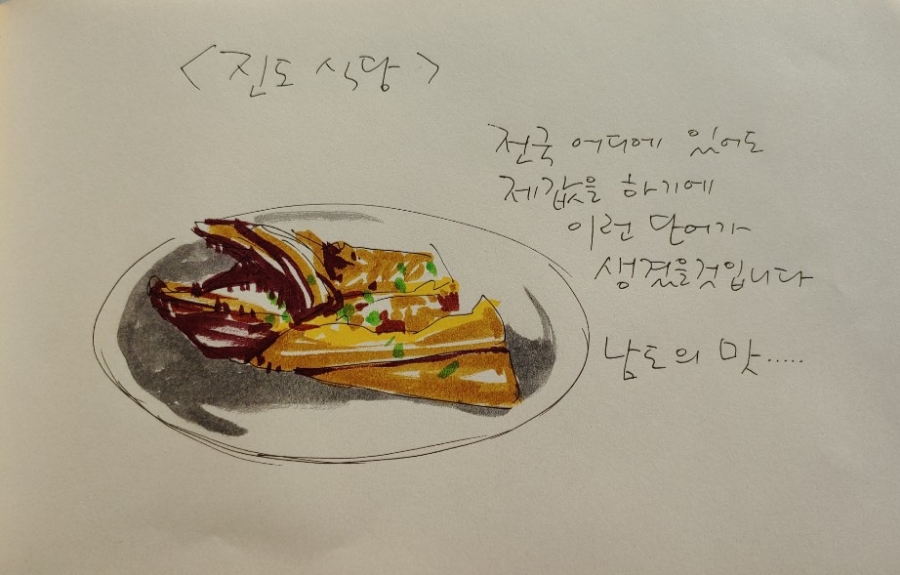 <진도 식당>
전국 어디에 있어도
제값을 하기에
이런 단어가
생겼을것입니다
남도의 맛.....